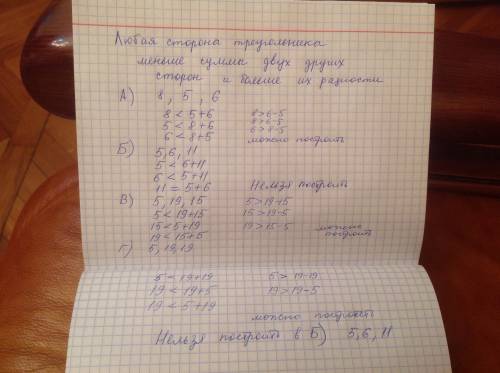 Любая сторона треугольника
меньше суммы двух других
сторон и больше их разности
А) 8, 5, 6
8 < 5+6 8 > 6-5
5 < 8+6 8 > 6-5
6 < 8+5 6 > 8-5
можно построить
Б) 5, 6, 11
5 < 6+11
6 < 5+11
11 = 5+6 Нельзя построить
В) 5, 19, 15 5 > 19-15
5 < 19+15 15 > 19-5
15 < 5+19 19 > 15-5 можно
19 < 15+5 построить
Г) 5, 19, 19
5 < 19+19 5 > 19-19
19 < 19+5 19 > 19-5
19 < 5+19
можно построить
Нельзя построить в Б) 5, 6, 11